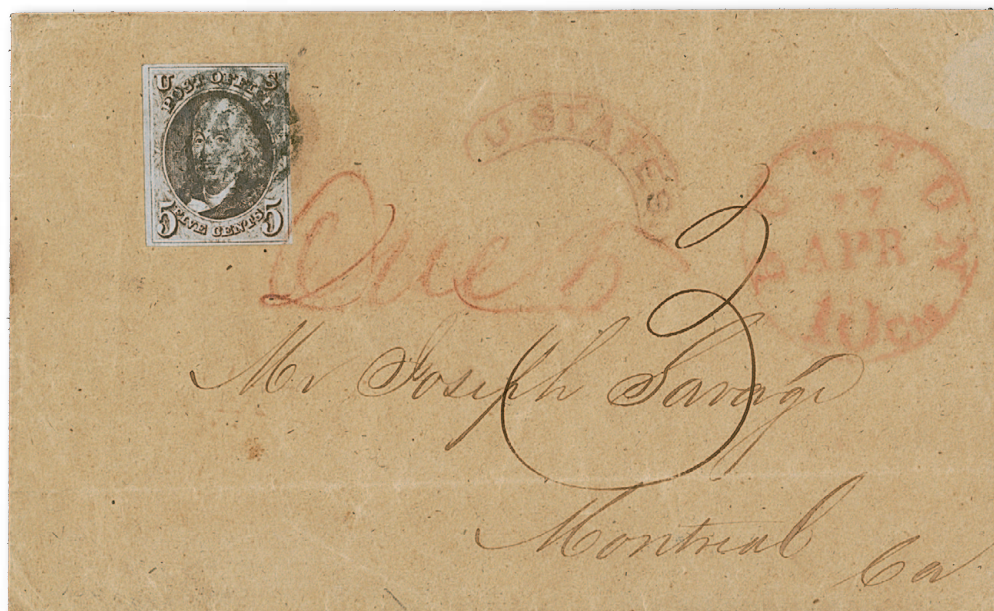 U S
POST OFFI
5 FIVE CENTS 5
U. STATES
BOSTON
17
APR
10 cts
Due 5
3
Mr Joseph Savage
Montreal
Ca